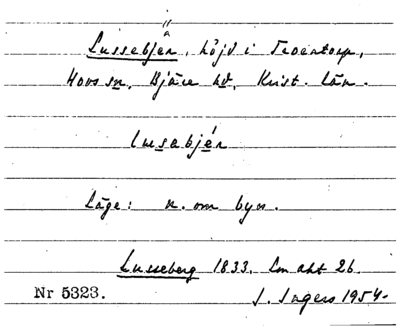 Lussebjär, höjd i Troentorp,
Hovs sn, Bjäre hd, Krist. län.
lusabjér
Läge: n. om byn.
Lusseberg 1833. Lm akt 26.
Nr 5323. J. Ingers 1954.